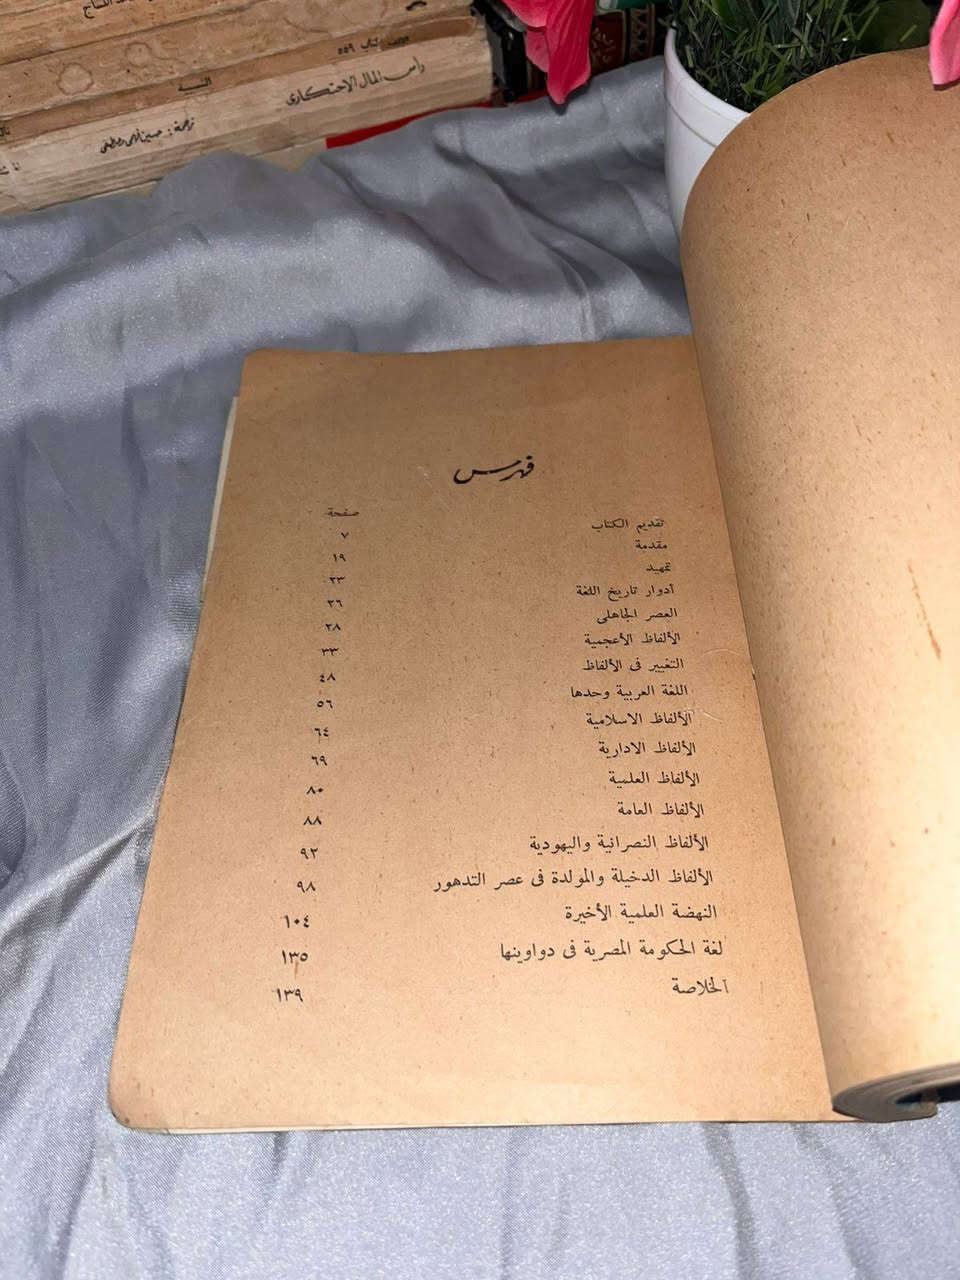 كتاب ٥٥٩
رأس المال الاحتكارى
ترجمة :
فهرس
صفحة
تقديم الكتاب ٧
مقدمة ١٩
تمهيد ٢٣
أدوار تاريخ اللغة ٢٦
العصر الجاهلى ٢٨
الألفاظ الأعجمية ٣٣
التغيير فى الألفاظ ٤٨
اللغة العربية وحدها ٥٦
الألفاظ الاسلامية ٦٤
الألفاظ الادارية ٦٩
الألفاظ العلمية ٨٠
الألفاظ العامة ٨٨
الألفاظ النصرانية واليهودية ٩٢
الألفاظ الدخيلة والمولدة فى عصر التدهور ٩٨
النهضة العلمية الأخيرة ١٠٤
لغة الحكومة المصرية فى دواوينها ١٣٥
الخلاصة ١٣٩